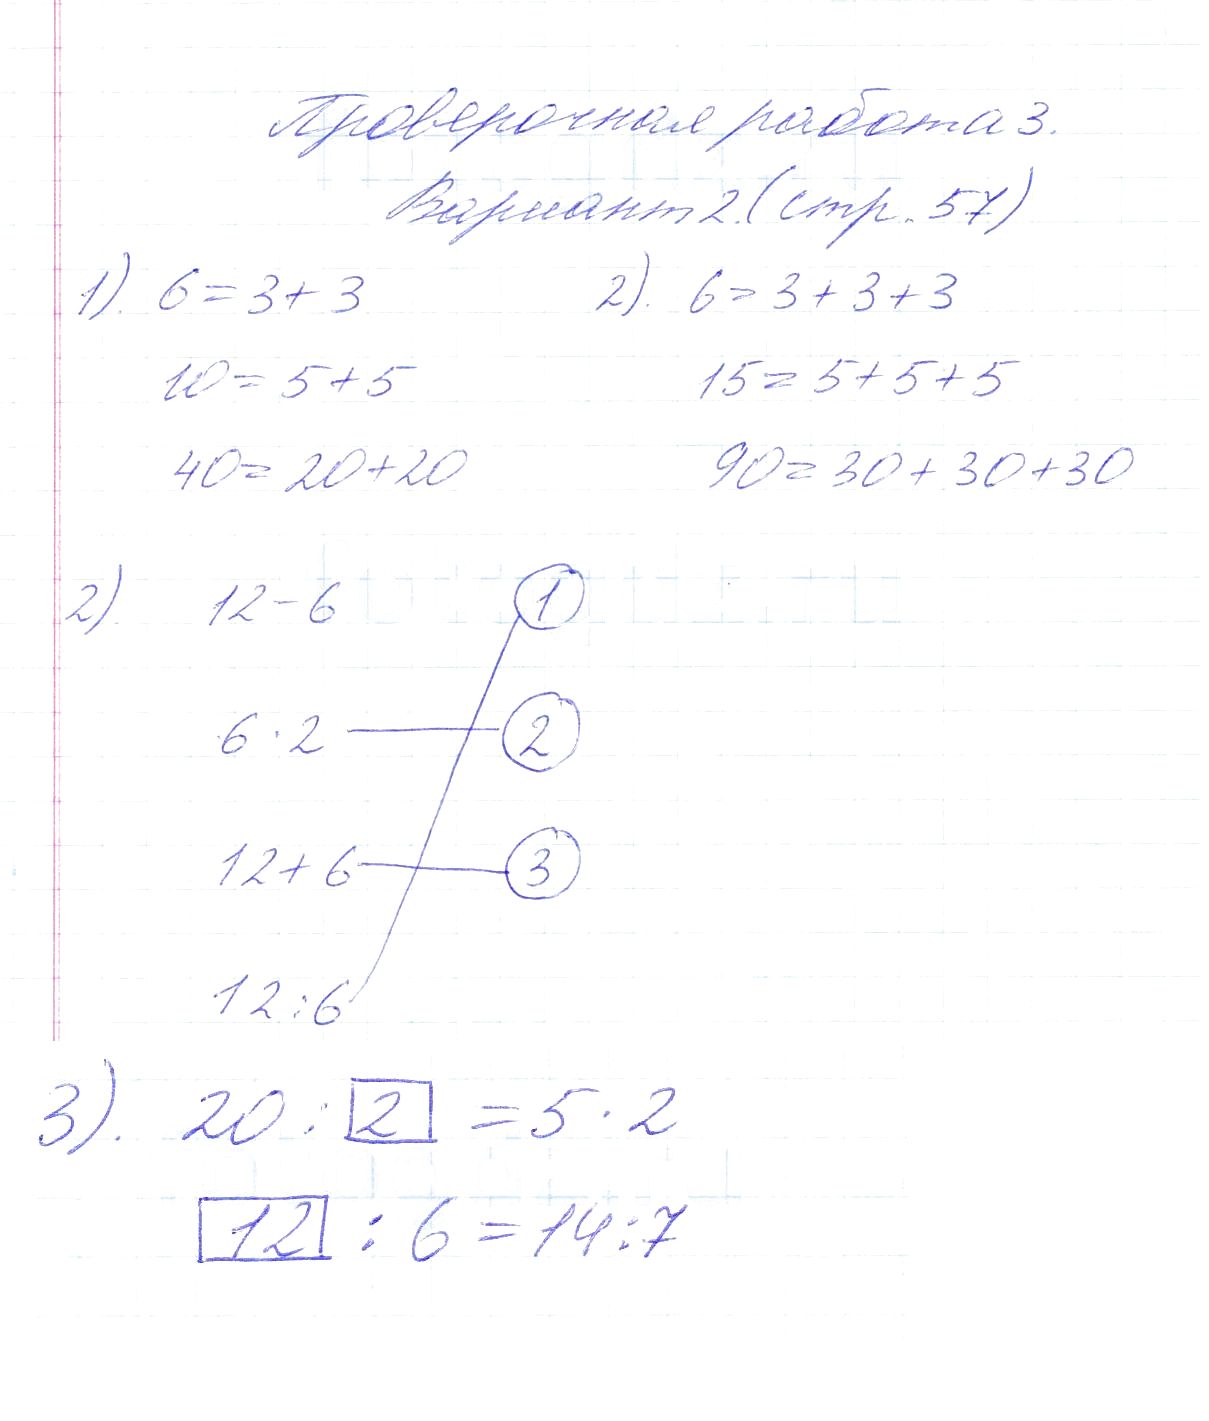 Проверочная работа 3.
Вариант 2. (стр. 57)
1). 6 = 3 + 3 2). 6 = 3 + 3 + 3
10 = 5 + 5 15 = 5 + 5 + 5
40 = 20 + 20 90 = 30 + 30 + 30
2) 12 - 6 1
6 · 2 2
12 + 6 3
12 : 6
3). 20 : 2 = 5 · 2
12 : 6 = 14 : 7